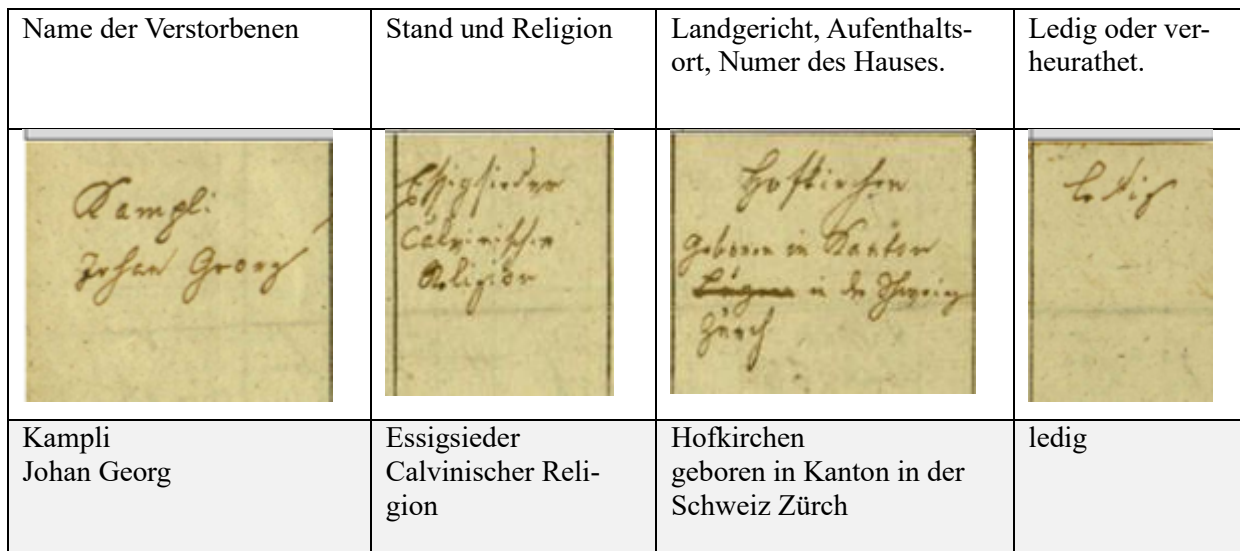 Name der Verstorbenen
Stand und Religion
Landgericht, Aufenthalts-
ort, Numer des Hauses.
Ledig oder ver-
heurathet.
Kampli:
Johan Georg
Essigsieder
Calvinischer
Religion
Hofkirchen
geboren in Kanton
in der Schweiz
Zürch
ledig
Kampli
Johan Georg
Essigsieder
Calvinischer Reli-
gion
Hofkirchen
geboren in Kanton in der
Schweiz Zürch
ledig